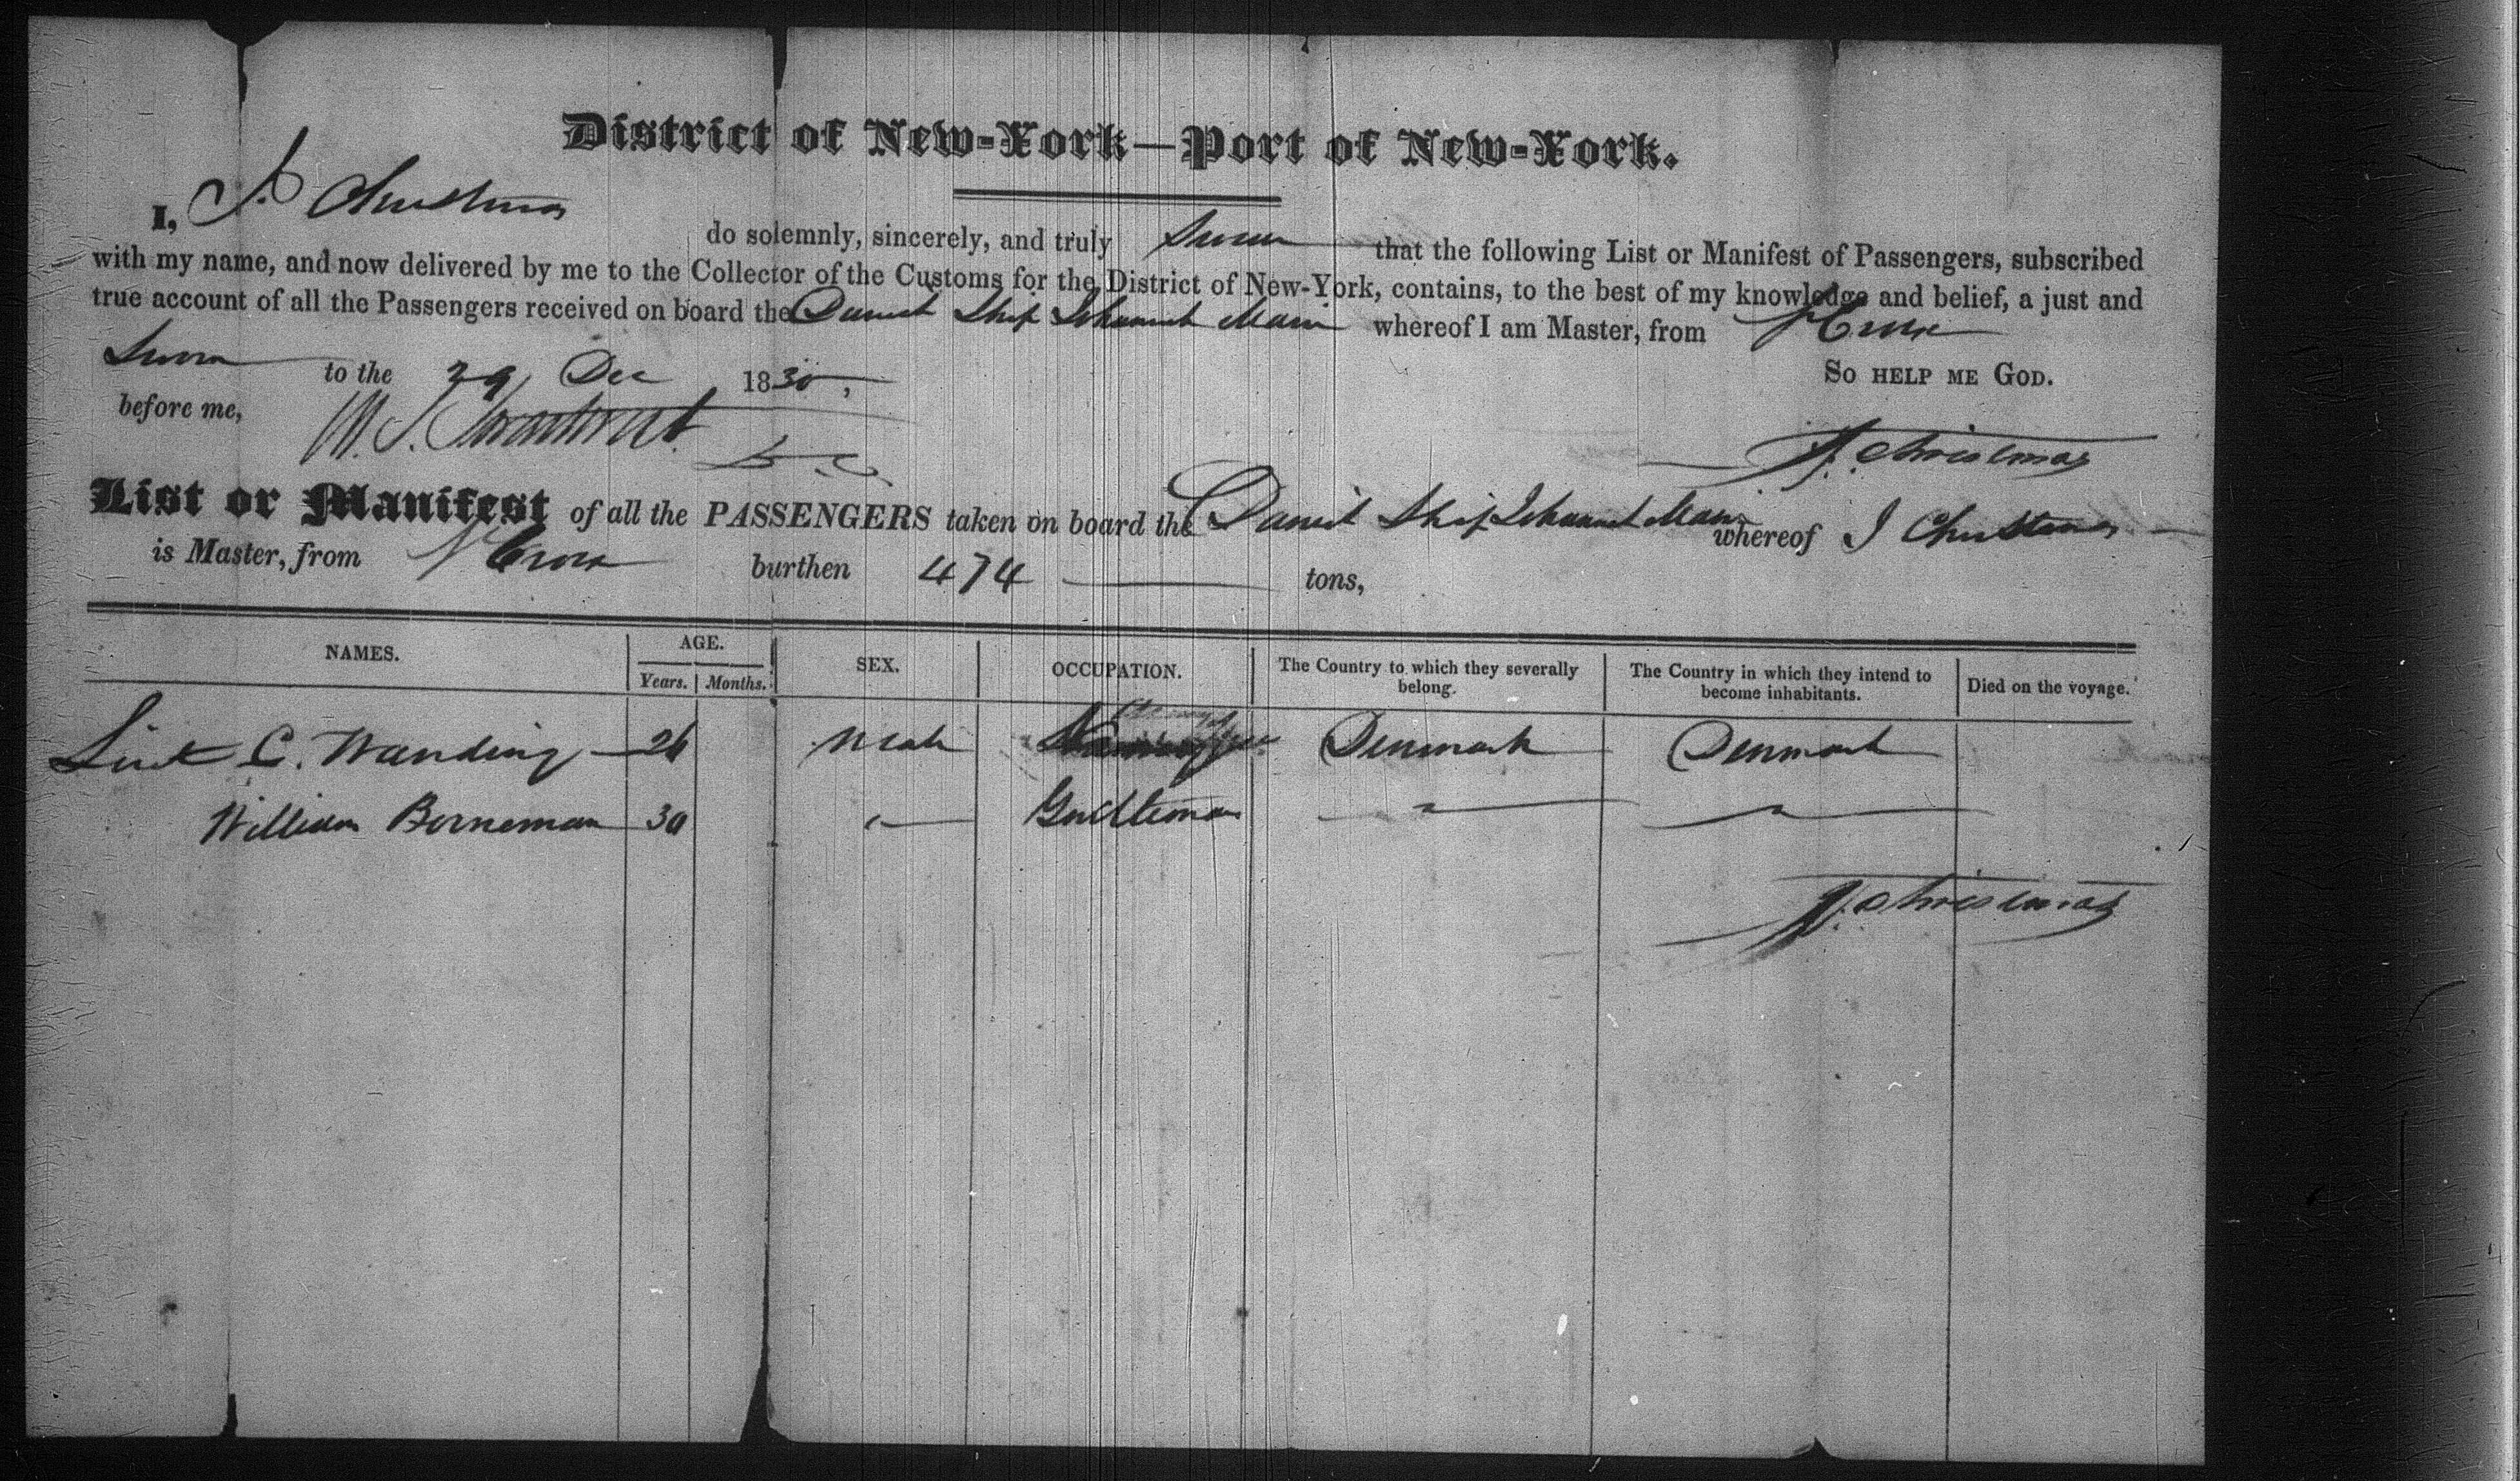 District of New-York—Port of New-York.
I, J. Christmas do solemnly, sincerely, and truly Swear that the following List or Manifest of Passengers, subscribed
with my name, and now delivered by me to the Collector of the Customs for the District of New-York, contains, to the best of my knowledge and belief, a just and
true account of all the Passengers received on board the Danish Ship Johannah Maria whereof I am Master, from St Croix
Sworn to the 29 Dec 1830, So help me God.
before me,
J. Christmas
List or Manifest of all the PASSENGERS taken on board the Danish Ship Johannah Maria whereof J Christmas
is Master, from St Croix burthen 474 tons,
NAMES. AGE. Years. Months. SEX. OCCUPATION. The Country to which they severally belong. The Country in which they intend to become inhabitants. Died on the voyage.
Lieut C. Wanding 26 Male Denmark Denmark
William Borneman 30 Gentleman
J. Christmas